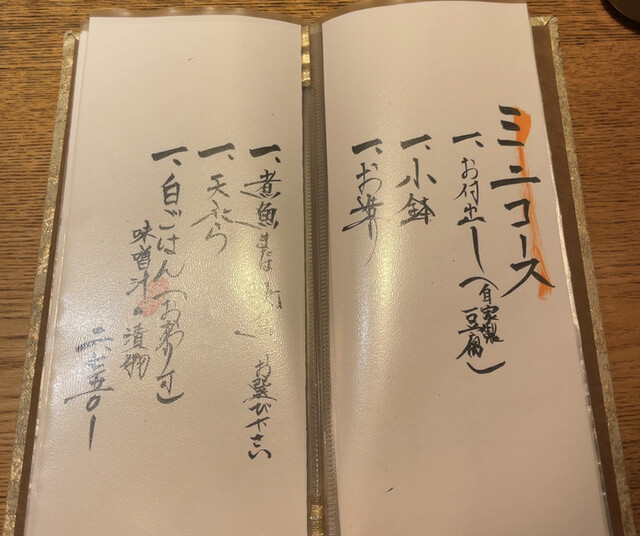 ミニコース
一、お付出し(自家製豆腐)
一、小鉢
一、お造り
一、煮魚または お選び下さい
一、天ぷら
一、白ごはん(おかわり可)
味噌汁・漬物
二七五〇ー